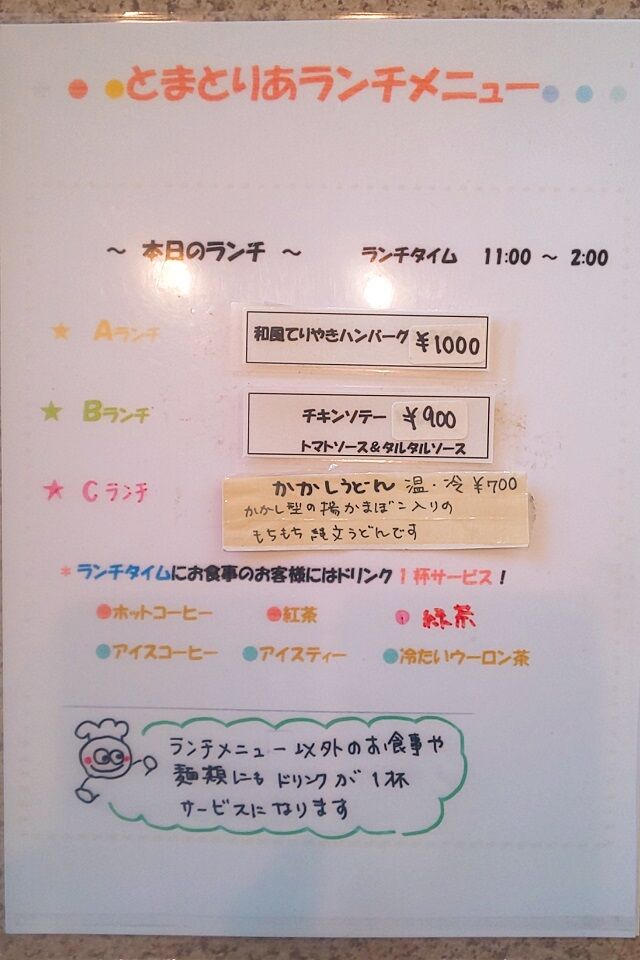 とまとりあランチメニュー
～ 本日のランチ ～ ランチタイム 11:00 ～ 2:00
★ Aランチ 和風てりやきハンバーグ ¥1000
★ Bランチ チキンソテー ¥900
トマトソース&タルタルソース
★ Cランチ かかしうどん 温・冷 ¥700
かかし型の揚かまぼこ入りの
もちもち縄文うどんです
*ランチタイムにお食事のお客様にはドリンク1杯サービス!
●ホットコーヒー ●紅茶 ●緑茶
●アイスコーヒー ●アイスティー ●冷たいウーロン茶
ランチメニュー以外のお食事や
麺類にもドリンクが1杯
サービスになります